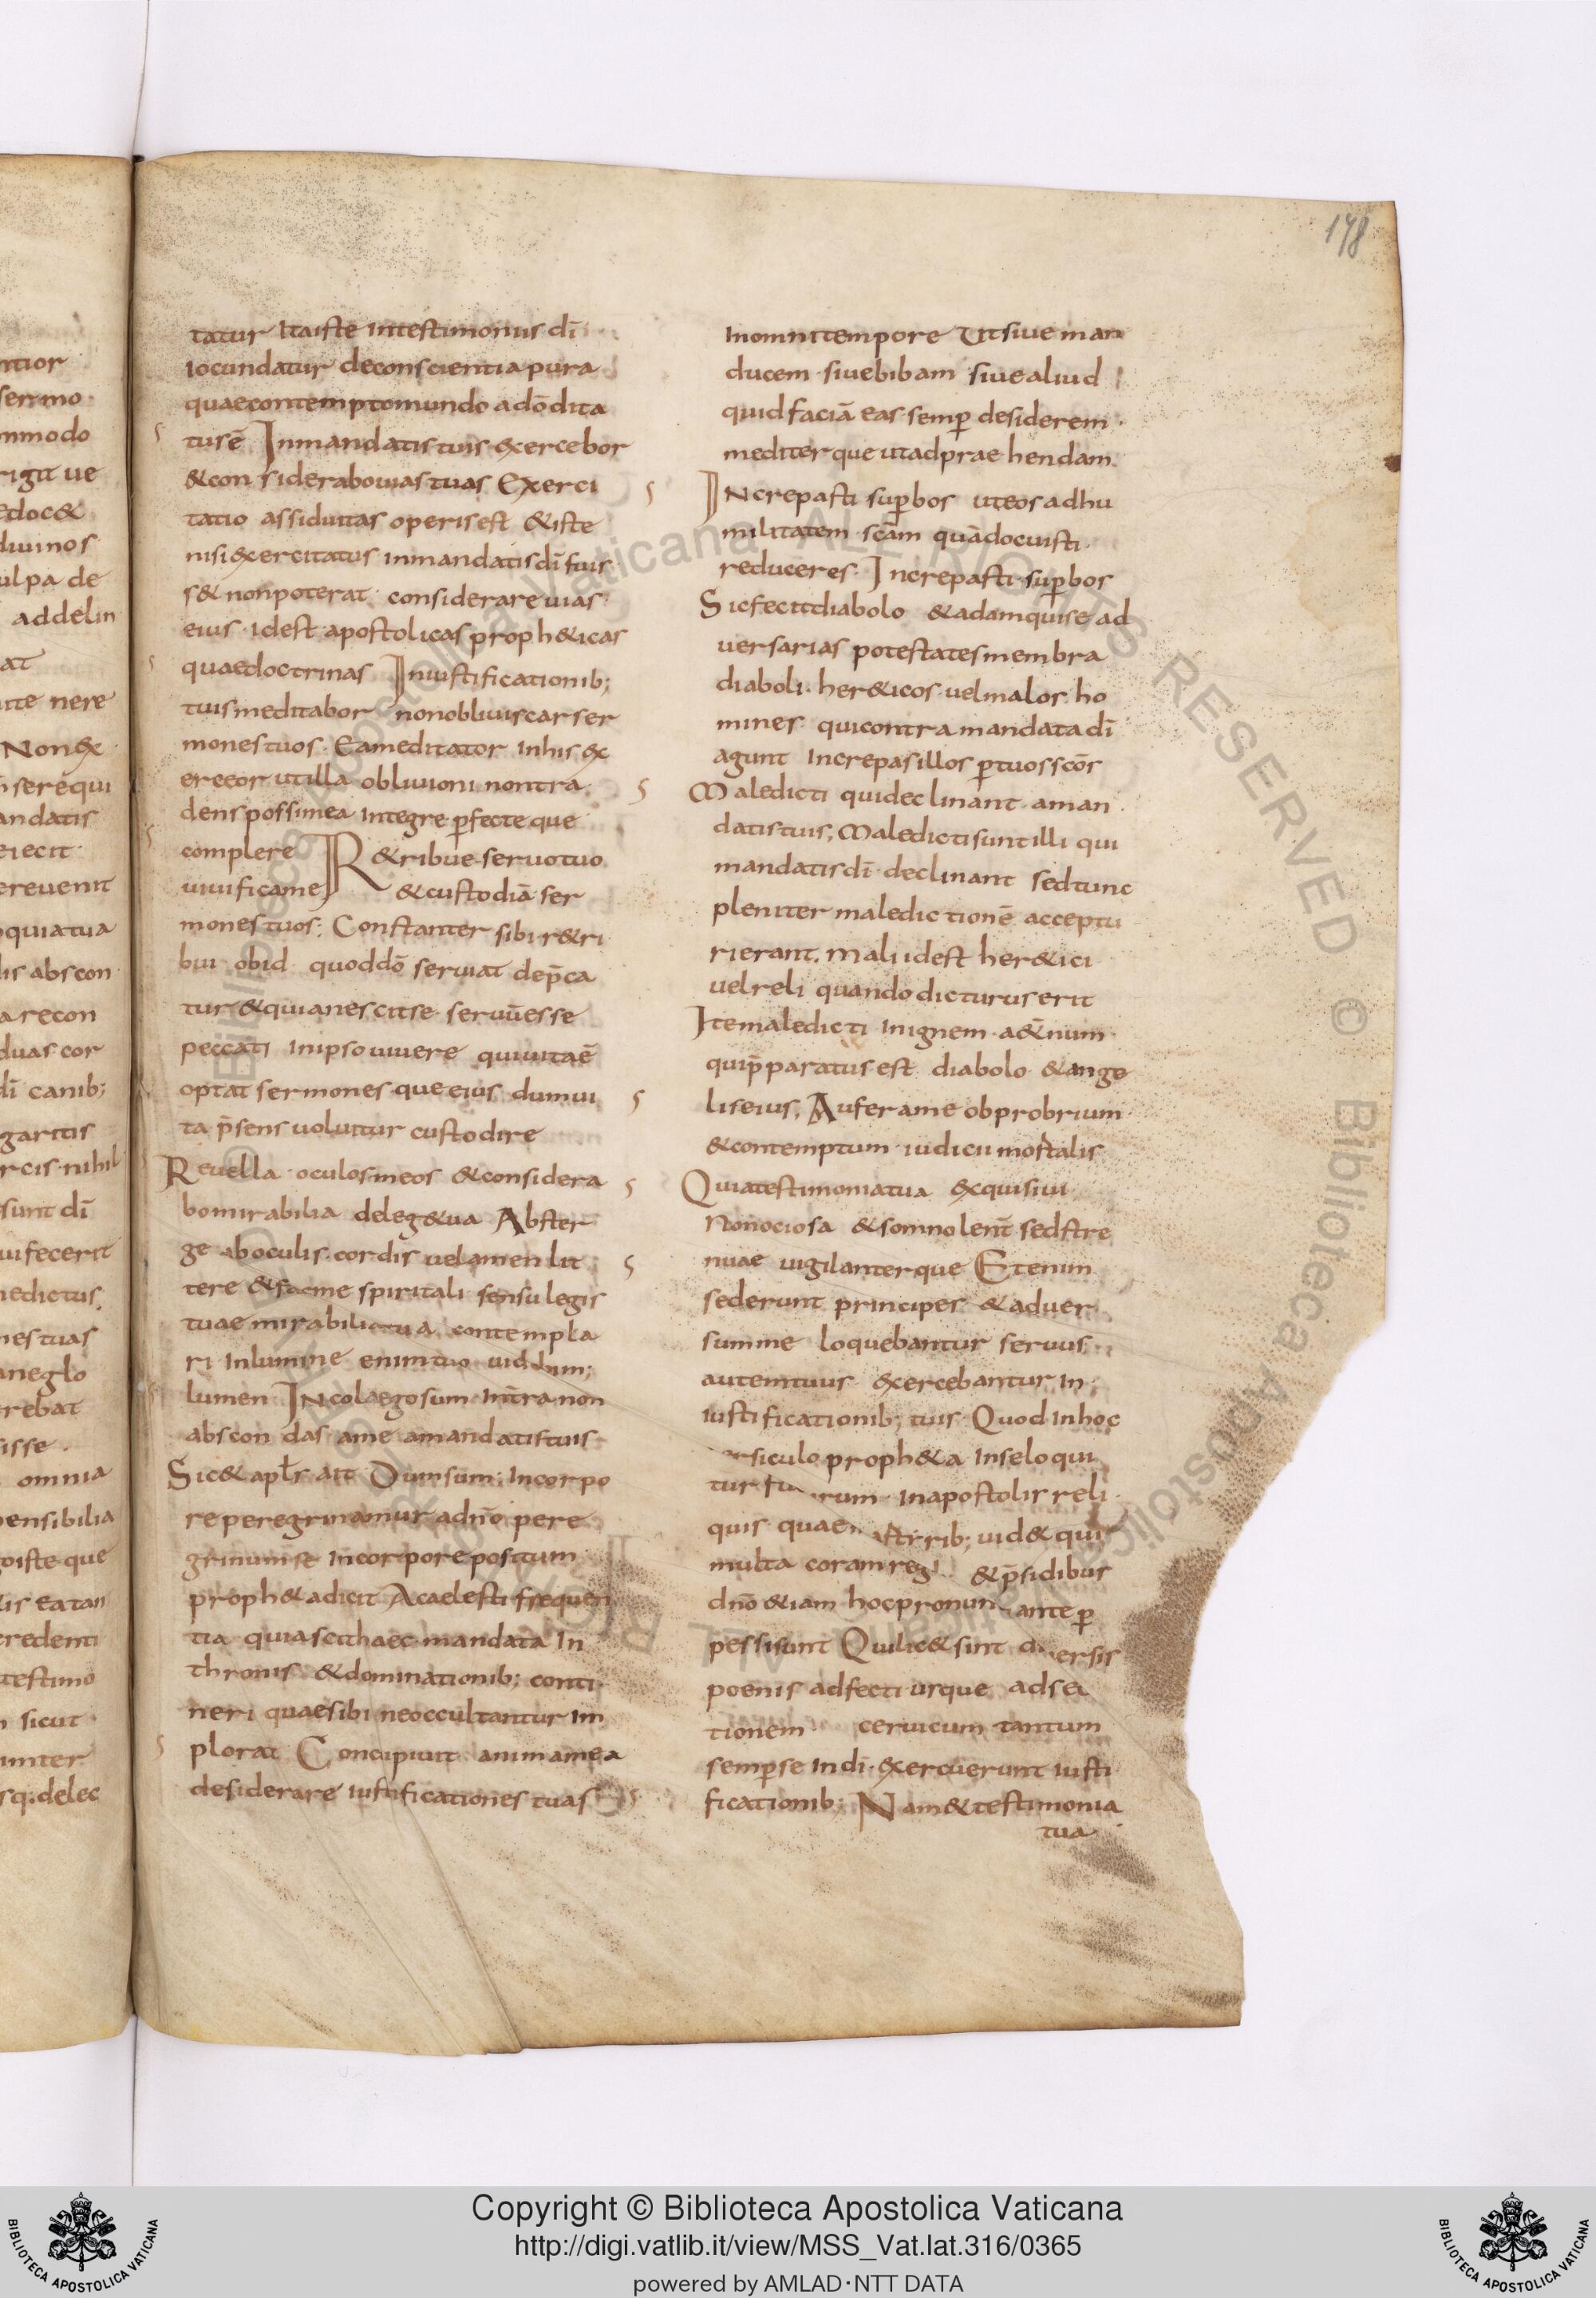 178
tatur Itaiste intestimoniis dī
iocundatur deconscientia pura
quaecontemptomundo adōdita
tusē Inmandatistuis exercebor
&considerabouiastuas Exerci
tatio assiduitas operisest &iste
nisi exercitatus inmandatisdī fuis
s& nonpoterat considerareuias
eius idest apostolicas proph&icas
quaedoctrinas Iniustificationib;
tuismeditabor nonobliuiscarser
monestuos Eameditator inhis ex
erceor utilla obliuioni nontra
denspossimea integre ꝑfecte que
complere R&ribue seruotuo
uiuificame &custodiā ser
monestuos; Constanter sibi r&ri
bui obid quoddō seruiat dep̄ca
tur &quianescitse seruūesse
peccati inipsouiuere quiuitaē
optat sermones que eius dumui
ta p̄sens uoluitur custodire
Reuella oculosmeos &considera
bomirabilia deleg&ua Abster
ge aboculis cordis uelamen lit
tere &facme spiritali sensu legis
tuae mirabiliatua contempla
ri Inlumine enimtuo uidbim;
lumen Incolaegosum intra non
abscondas ame amandatistuis
Sic& apl̄s ait Dumsum; Incorpo
reperegrinamur adnō pere
grinumse incorporepositum
proph&adicit Acaelesti frequen
tia quiascithaec mandata in
thronis &dominationib; conti
neri quaesibi neoccultantur im
plorat Concipiuit animamea
desiderare iustificationes tuas
Inomnitempore Utsiue man
ducem siuebibam siuealiud
quid faciā eas semꝑ desiderem
mediterque utadpraehendam
Increpasti suꝑbos uteosadhu
militatem scām quādocuisti
reduceres Increpasti suꝑbos
Sicfecitdiabolo &adamquise ad
uersarias potestatesmembra
diaboli her&icos uelmalos ho
mines quicontra mandata dī
agunt Increpasillos ꝑtuosscōs
Maledicti quideclinant aman
datistuis; Maledictisuntilli qui
mandatisdī declinant sedtunc
pleniter maledictionē acceptu
rierant mali idest her&ici
uelreli quandodicturuserit
Itemaledicti inignem a&̄num
quip̄paratusest diabolo &ange
liseius; Auferame obprobrium
&contemptum iudicii mortalis
Quiatestimoniatua exquisiui
Nonociosa &somnolent̄ sedstre
nuae uigilanterque Etenim
sederunt principes &aduer
summe loquebantur seruus
autemtuus exercebantur in
iustificationib; tuis Quod inhoc
siculo proph&a inseloqui
tur
rum inapostolis reli
quis quae rib; uid& qui
multa coram regi &p̄sidibus
dnō &iam hocpronun ante ꝑ
pessisunt Quilic& sint ersis
poenis adfecti usque adse
tionem ceruicum tantum
semꝑse indī exercuerunt iusti
ficationib; Nam&testimonia
tua
ntior
sermo
mmodo
rigit ue
edoc&
diuinos
ulpa de
addelin
at
nere
Nonex
andatis
eiecit
ereuenit
quiatua
lis abscon
a recon
duas cor
dī canib;
garitis
rcis nihil
sunt dī
uifecerit
nedictus
nestuas
aneglo
rebat
isse
omnia
ensibilia
oiste que
lis eatan
credenti
testimo
sicut
unter
sq; delec
Copyright © Biblioteca Apostolica Vaticana
http://digi.vatlib.it/view/MSS_Vat.lat.316/0365
powered by AMLAD·NTT DATA
BIBLIOTECA APOSTOLICA VATICANA
BIBLIOTECA APOSTOLICA VATICANA